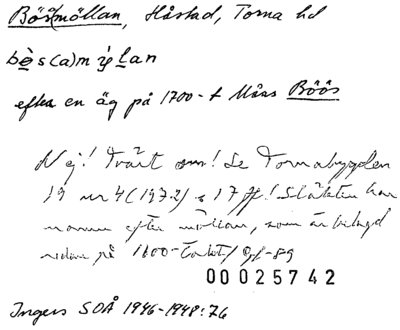 Böösmöllan, Håstad, Torna hd
bè̱s(a)m ý̱ḻan
efter en äg på 1700-t Måns Böös
Nej! Tvärt om! Se Tornabygden
19 nr 4 (1972) s 17 ff! Släkten har
namn efter möllan, som är belagd
redan på 1600-talet/ Gf-89
00025742
Ingers SOÅ 1946-1948:76